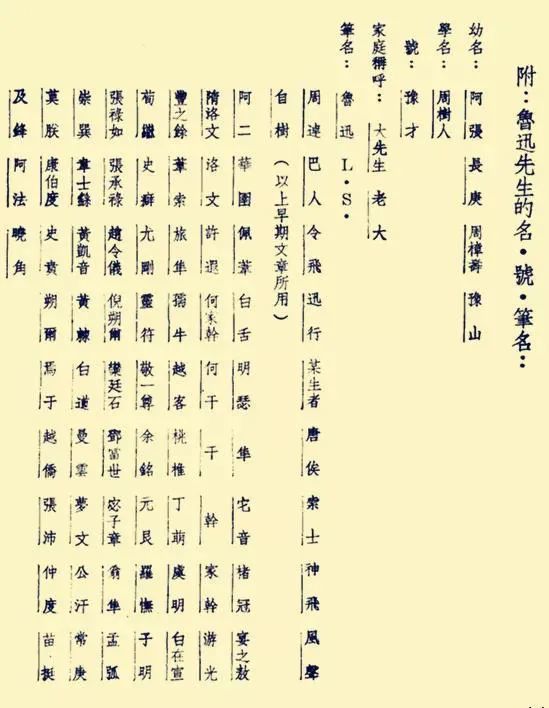 附：魯迅先生的名·號·筆名：
幼名：阿張 長庚 周樟壽 豫山
學名：周樹人
號：豫才
家庭稱呼：大先生 老大
筆名：魯迅 L·S·
周逴 巴人 令飛 迅行 某生者 唐俟 索士 神飛 風聲
自樹（以上早期文章所用）
阿二 華圉 佩韋 白舌 明瑟 隼 宅音 楮冠 宴之敖
隋洛文 洛文 許遐 何家幹 何干 干 幹 家幹 游光
豐之餘 葦索 旅隼 孺牛 越客 桃椎 丁萌 虞明 白在宣
荀繼 史癖 尤剛 靈符 敬一尊 余銘 元艮 羅憮 子明
張祿如 張承祿 趙令儀 倪朔爾 欒廷石 鄧當世 宓子章 翁隼 孟弧
崇巽 韋士繇 黃凱音 黃棘 白道 曼雲 夢文 公汗 常庚
莫朕 康伯度 史賁 朔爾 焉于 越僑 張沛 仲度 苗·挺
及鋒 阿法 曉角